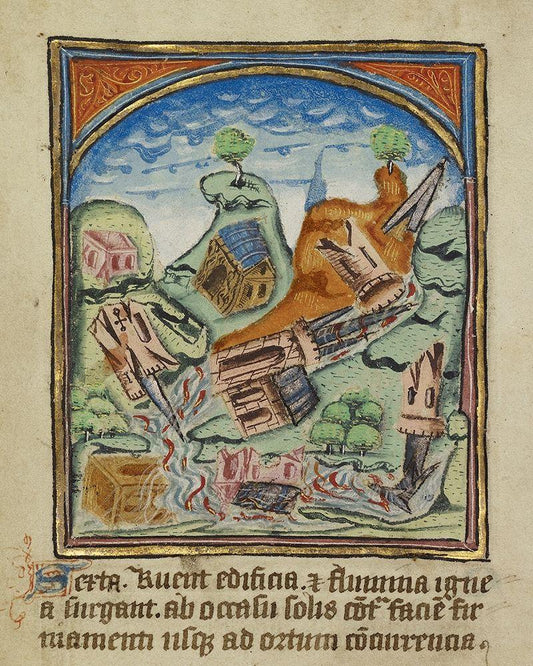 Sexta. Ruent edificia. ⁊ flumina igne
a surgant. ab occasu solis cōt̄ faciē fir
mamenti usqꝫ ad ortum cōcurrencia.